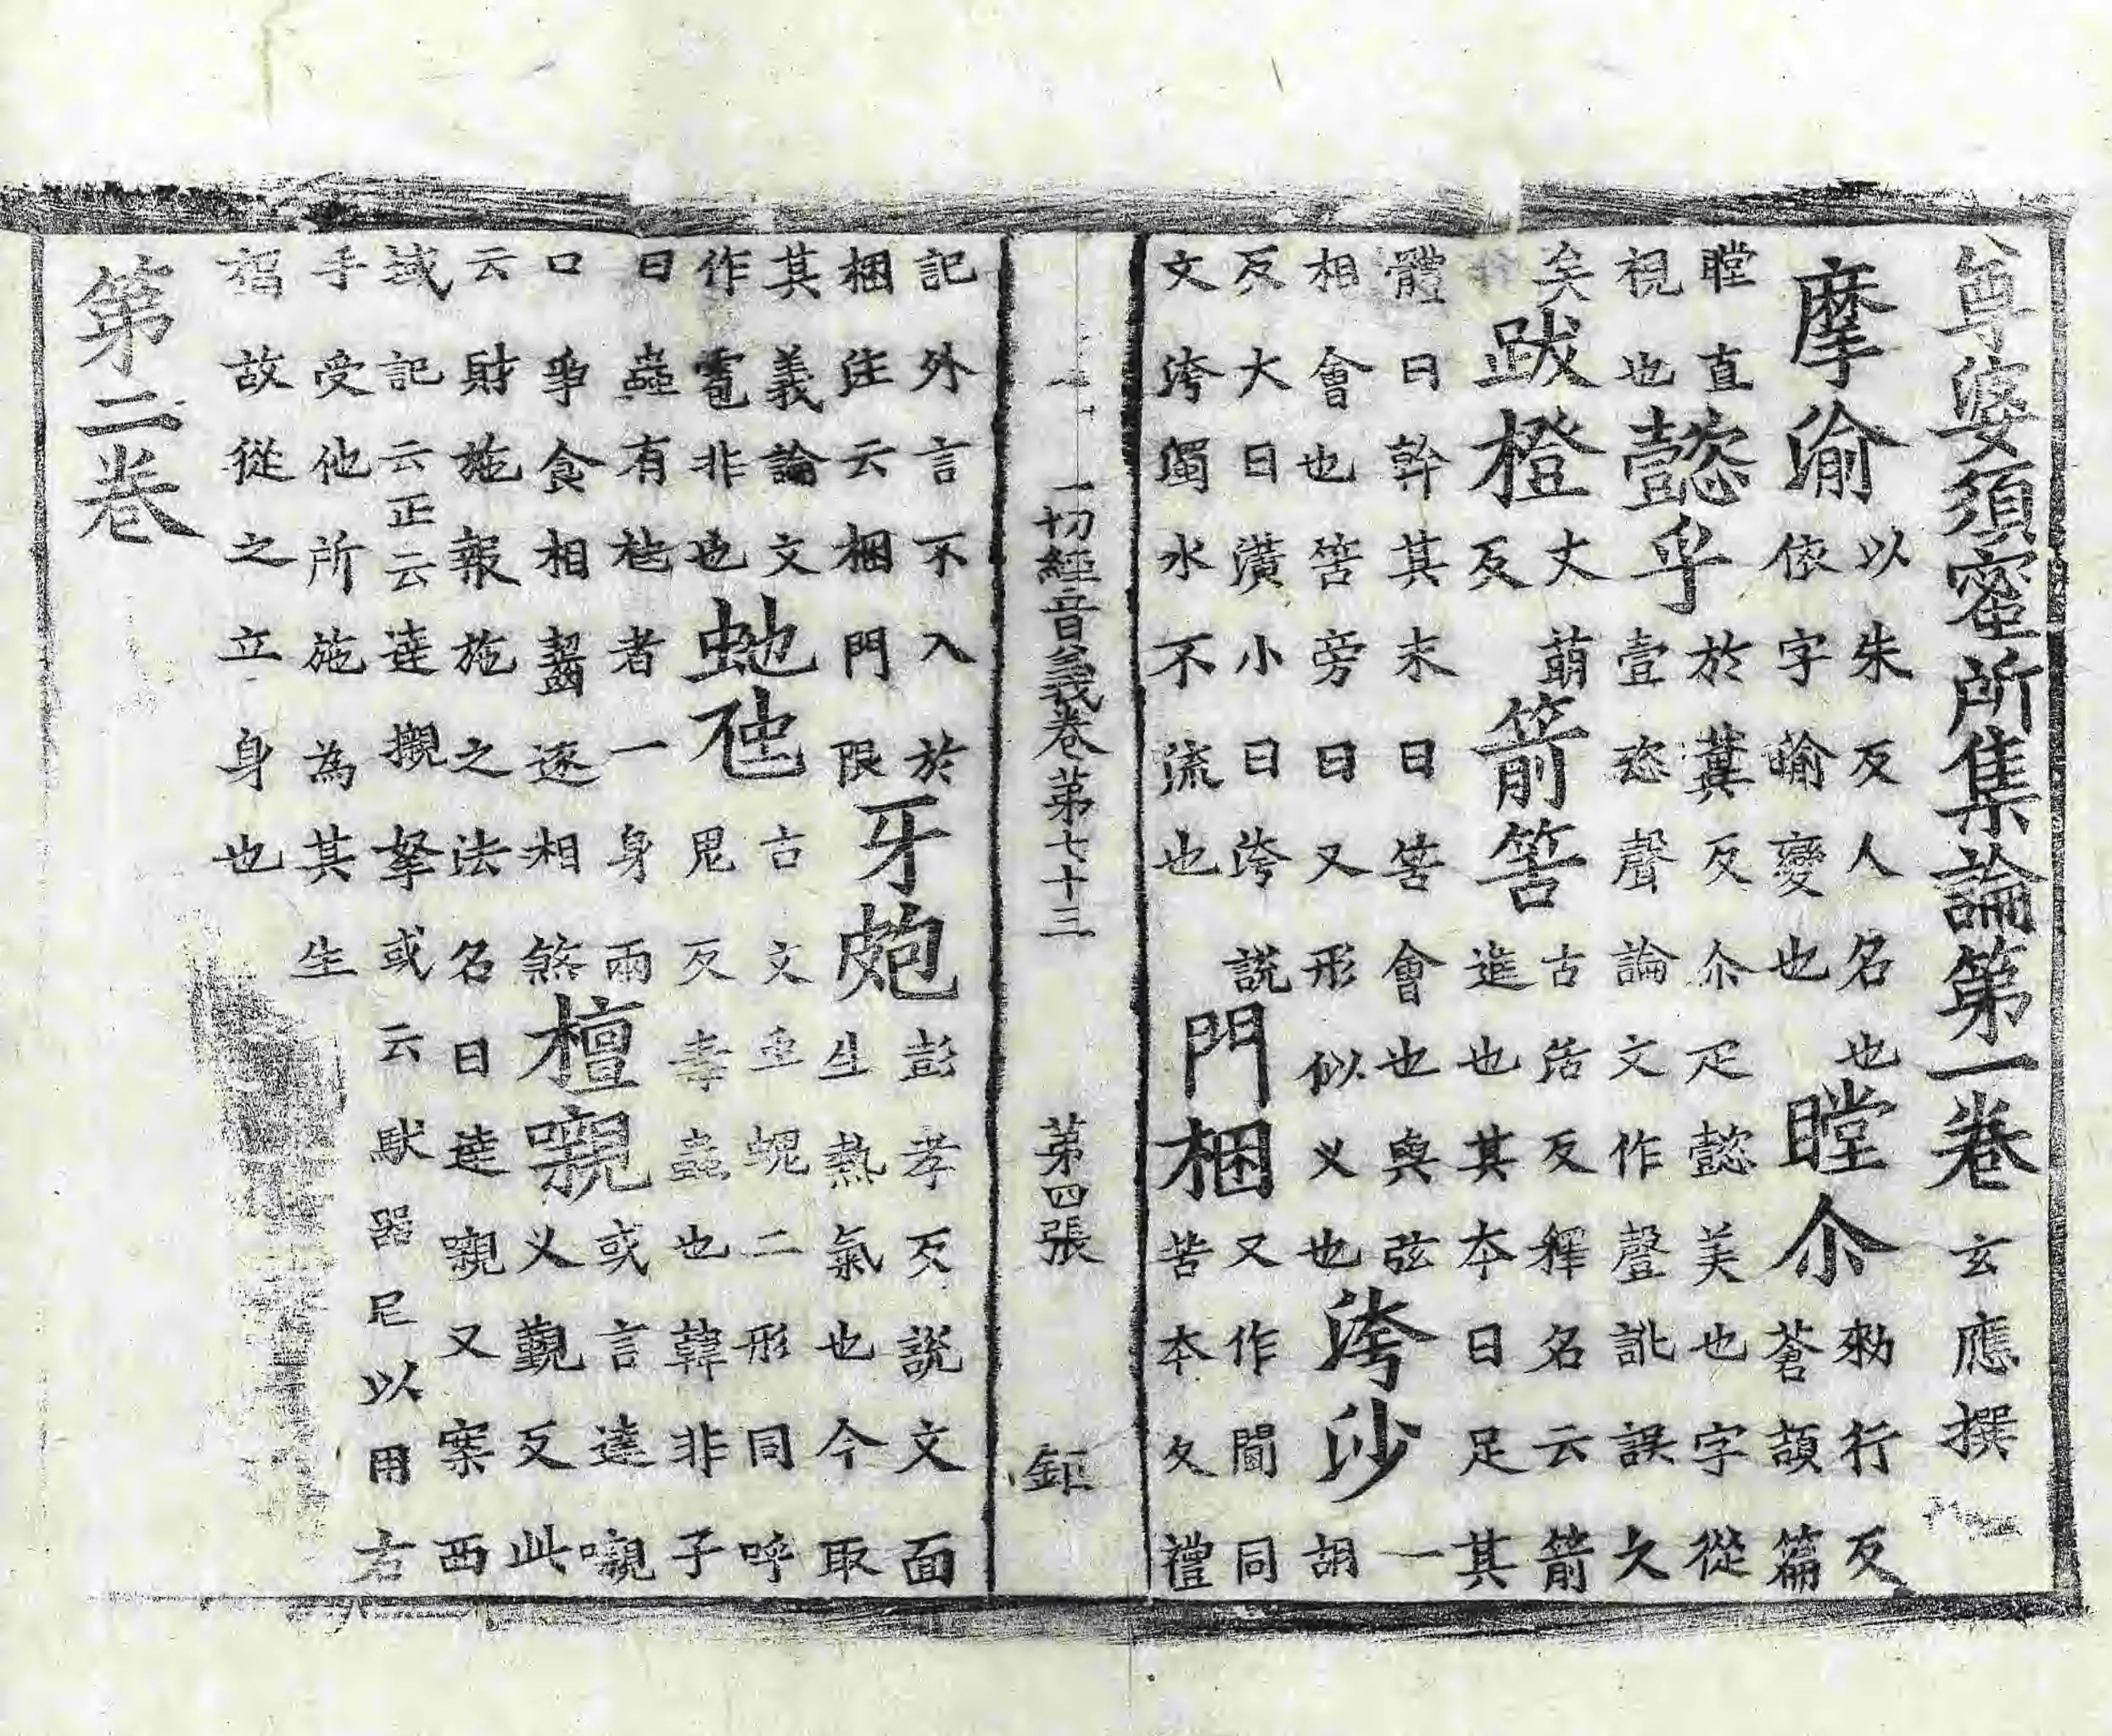 尊婆須蜜所集論第一卷 玄應撰
摩渝 以朱反人名也依字輸變也 瞠尒 勑行反蒼頡篇
瞠直視也 懿乎 於蓂反尒疋懿美也字從壹恣聲論文作聲訛誤久
矣 跋橙 丈萌反 箭筈 古活反釋名云箭進也其夲曰足其
體曰幹其末曰筈會也與弦相會也筈旁曰叉形似义也 洿沙 一胡
反大曰潢小曰洿說文洿濁水不流也 門梱 又作閫同苦夲久禮
一切經音義卷第七十三 第四張 鉅
記外言不入於梱注云梱門限 牙皰 彭孝反說文面生熱氣也今取
其義論文作雹非也 虵虺 古文蜫二形同呼鬼反毒蟲也韓非子
曰蟲有虺者一身兩口爭食相齧遂相煞 檀嚫 或言達嚫义覲反此
云財施報施之法名曰達嚫又案西域記云正云達櫬拏或云馱器尼以用右
手受他所施為其生福故從之立身也
第二卷